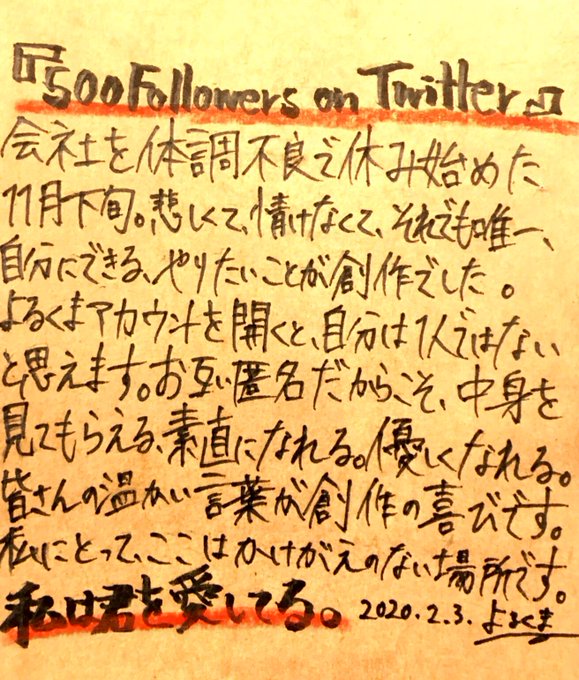 『500 Followers on Twitter』
会社を体調不良で休み始めた
11月下旬。悲しくて、情けなくて、それでも唯一、
自分にできる、やりたいことが創作でした。
よるくまアカウントを開くと、自分は1人ではない
と思えます。お互い匿名だからこそ、中身を
見てもらえる、素直になれる。優しくなれる。
皆さんの温かい言葉が創作の喜びです。
私にとって、ここはかけがえのない場所です。
私は君を愛してる。 2020.2.3. よるくま